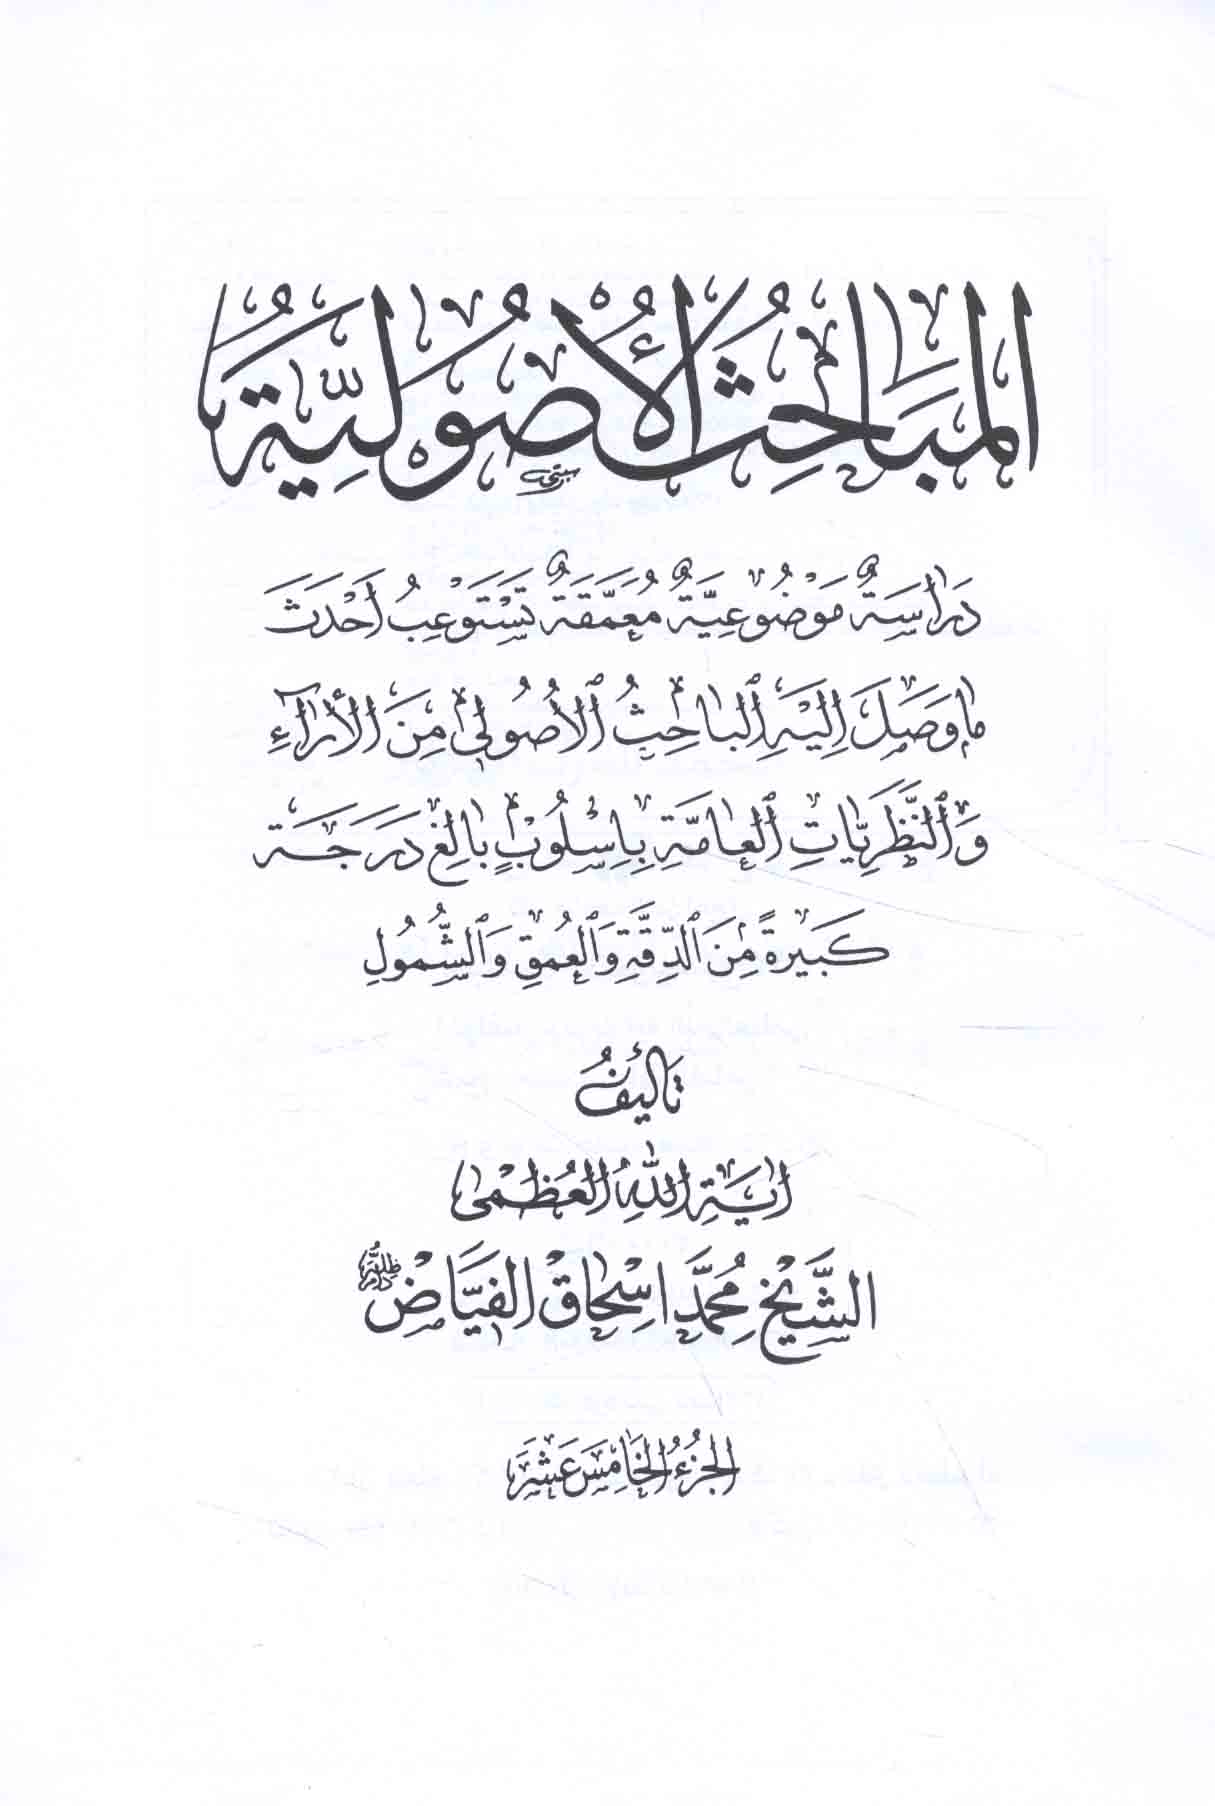 المباحث الأصولية
دراسة موضوعية معمقة تستوعب أحدث
ما وصل إليه الباحث الأصولي من الآراء
والنظريات العامة باسلوب بالغ درجة
كبيرة من الدقة والعمق والشمول
تأليف
آية الله العظمى
الشيخ محمد اسحاق الفياض دام ظله
الجزء الخامس عشر